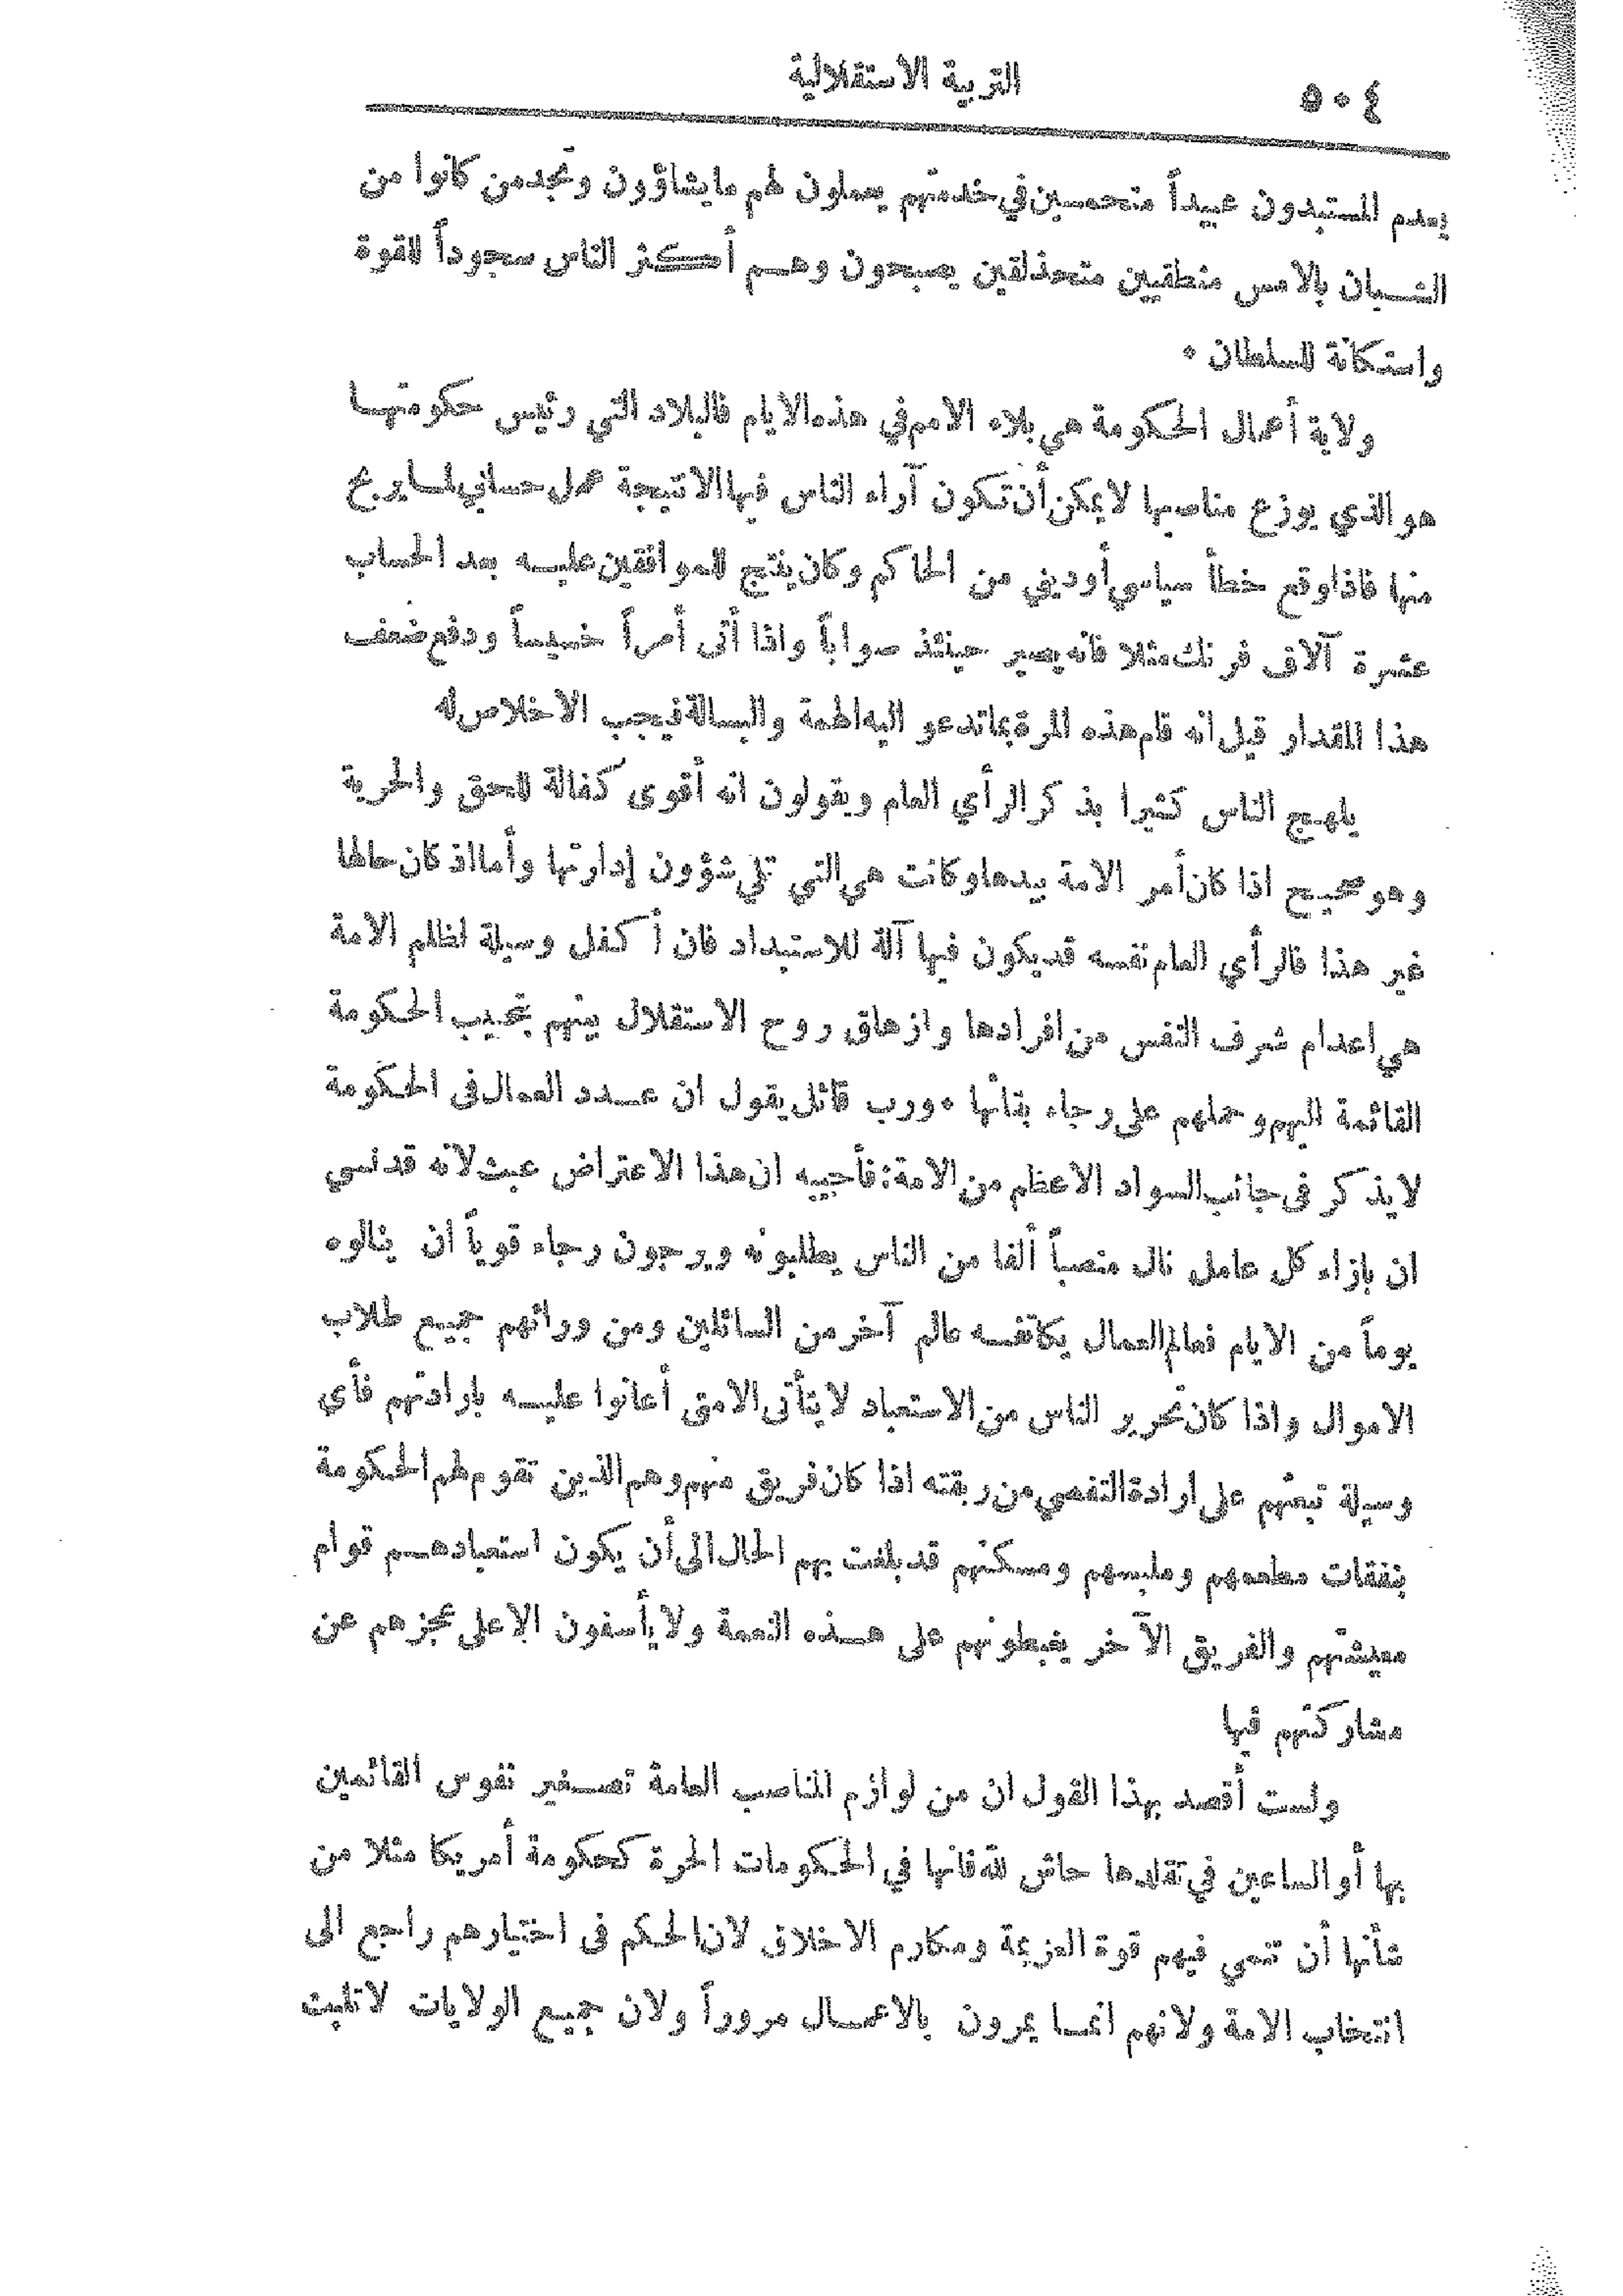 ٥٠٤
التربية الاستقلالية
يعدم المستبدون عبيداً متحمسين في خدمتهم يعملون لهم ما يشاؤون وتجد من كانوا من
الشبان بالامس منطقيين متحذلقين يصبحون وهم أكثر الناس سجوداً للقوة
واستكانة للسلطان ٠
ولاية أعمال الحكومة هي بلاء الامم في هذه الايام فالبلاد التي رئيس حكومتها
هو الذي يوزع مناصبها لا يمكن أن تكون آراء الناس فيها الا نتيجة عمل حسابي لما يربح
منها فاذا وقع خطأ سياسي أو ديني من الحاكم وكان ينتج للموافقين عليه بعد الحساب
عشرة آلاف فرنك مثلا فانه يصير حينئذ صواباً واذا أتى أمراً خسيساً ودفع ضعف
هذا المقدار قيل انه قام هذه المرة بما تدعو اليه الهمة والبسالة فيجب الاخلاص له
يلهج الناس كثيرا بذكر الرأي العام ويقولون انه أقوى كفالة للحق والحرية
وهو صحيح اذا كان أمر الامة بيدها وكانت هي التي تلي شؤون إدارتها وأما اذ كان حالها
غير هذا فالرأي العام نفسه قد يكون فيها آلة للاستبداد فان أكفل وسيلة لظلم الامة
هي اعدام شرف النفس من افرادها وازهاق روح الاستقلال بينهم بتحبيب الحكومة
القائمة اليهم وحملهم على رجاء بقائها ٠ ورب قائل يقول ان عدد العمال في الحكومة
لا يذكر في جانب السواد الاعظم من الامة: فأجيبه ان هذا الاعتراض عبث لانه قد نسي
ان بازاء كل عامل نال منصباً ألفا من الناس يطلبونه ويرجون رجاء قوياً ان ينالوه
يوماً من الايام فعالم العمال يكاتفه عالم آخر من السائلين ومن ورائهم جميع طلاب
الاموال واذا كان تحرير الناس من الاستعباد لا يتأتى الا متى أعانوا عليه بارادتهم فأي
وسيلة تبعثهم على ارادة التفصي من ربقته اذا كان فريق منهم وهم الذين تقوم لهم الحكومة
بنفقات مطعمهم وملبسهم ومسكنهم قد بلغت بهم الحال الى أن يكون استعبادهم قوام
معيشتهم والفريق الآخر يغبطونهم على هذه النعمة ولا يأسفون الا على عجزهم عن
مشاركتهم فيها
ولست أقصد بهذا القول ان من لوازم المناصب العامة تصغير نفوس القائمين
بها أو الساعين في تقلدها حاش لله فانها في الحكومات الحرة كحكومة أمريكا مثلا من
شأنها أن تنمي فيهم قوة العزيمة ومكارم الاخلاق لان الحكم في اختيارهم راجع الى
انتخاب الامة ولانهم انما يمرون بالاعمال مروراً ولان جميع الولايات لا تلبث